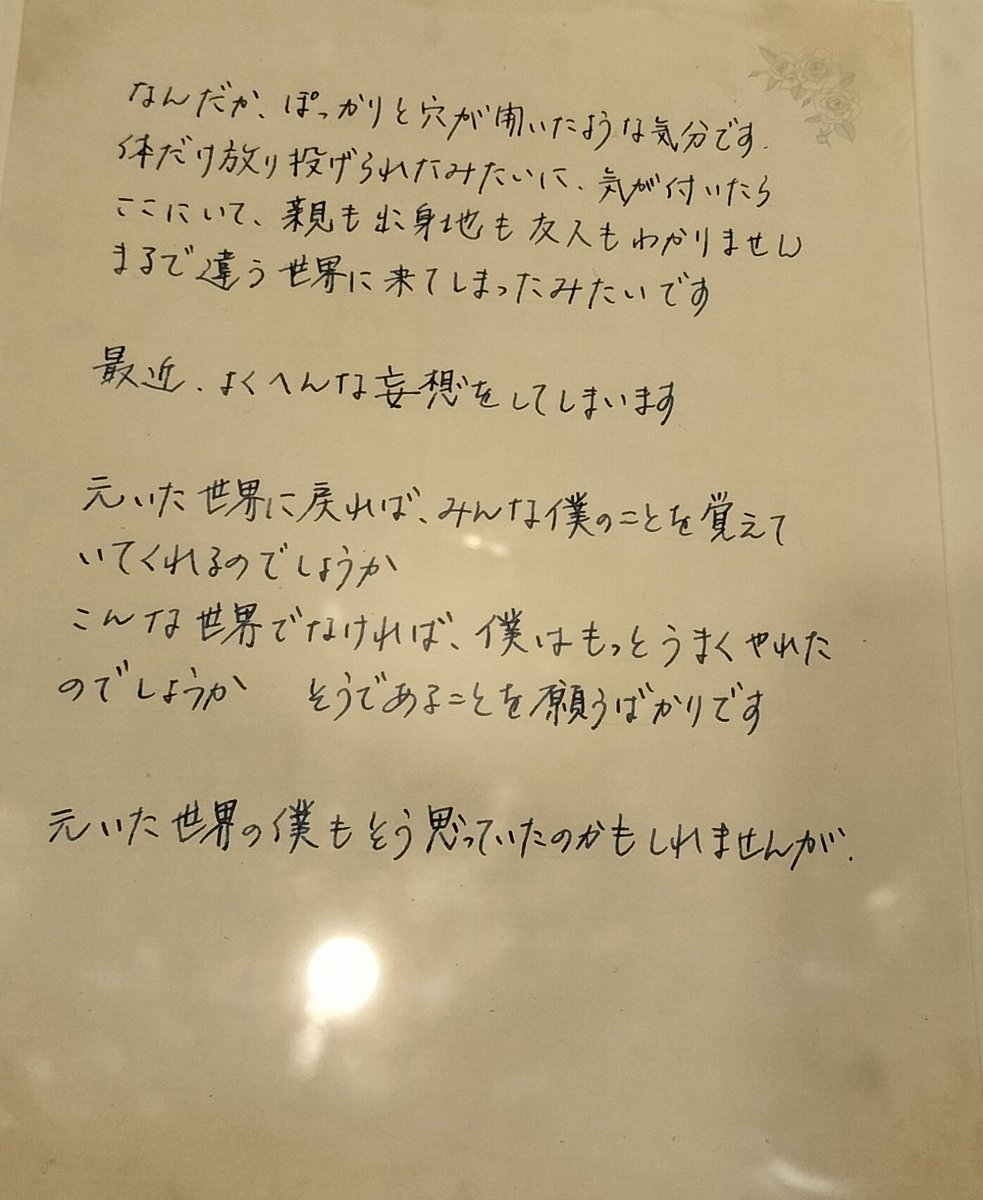 なんだか、ぽっかりと穴が開いたような気分です.
体だけ放り投げられたみたいに、気が付いたら
ここにいて、親も出身地も友人もわかりません
まるで違う世界に来てしまったみたいです
最近、よくへんな妄想をしてしまいます
元いた世界に戻れば、みんな僕のことを覚えて
いてくれるのでしょうか
こんな世界でなければ、僕はもっとうまくやれた
のでしょうか　そうであることを願うばかりです
元いた世界の僕もそう思っていたのかもしれませんが.